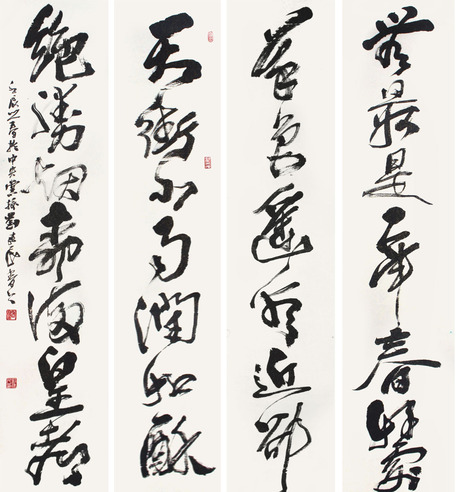 無最是一年春好處
草色遙看近卻
天街小雨潤如酥
絕勝烟柳滿皇都
壬辰之春於中央黨校劉